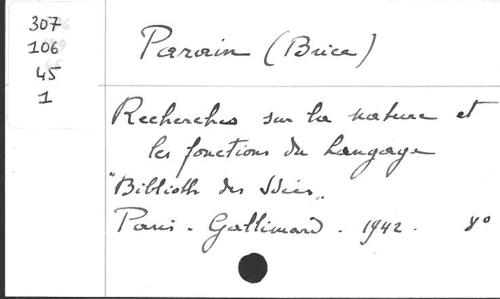 307
106
45
1
Parain (Brice)
Recherches sur la nature et
les fonctions du langage
"Biblioth des Idées"
Paris - Gallimard - 1942. 8°